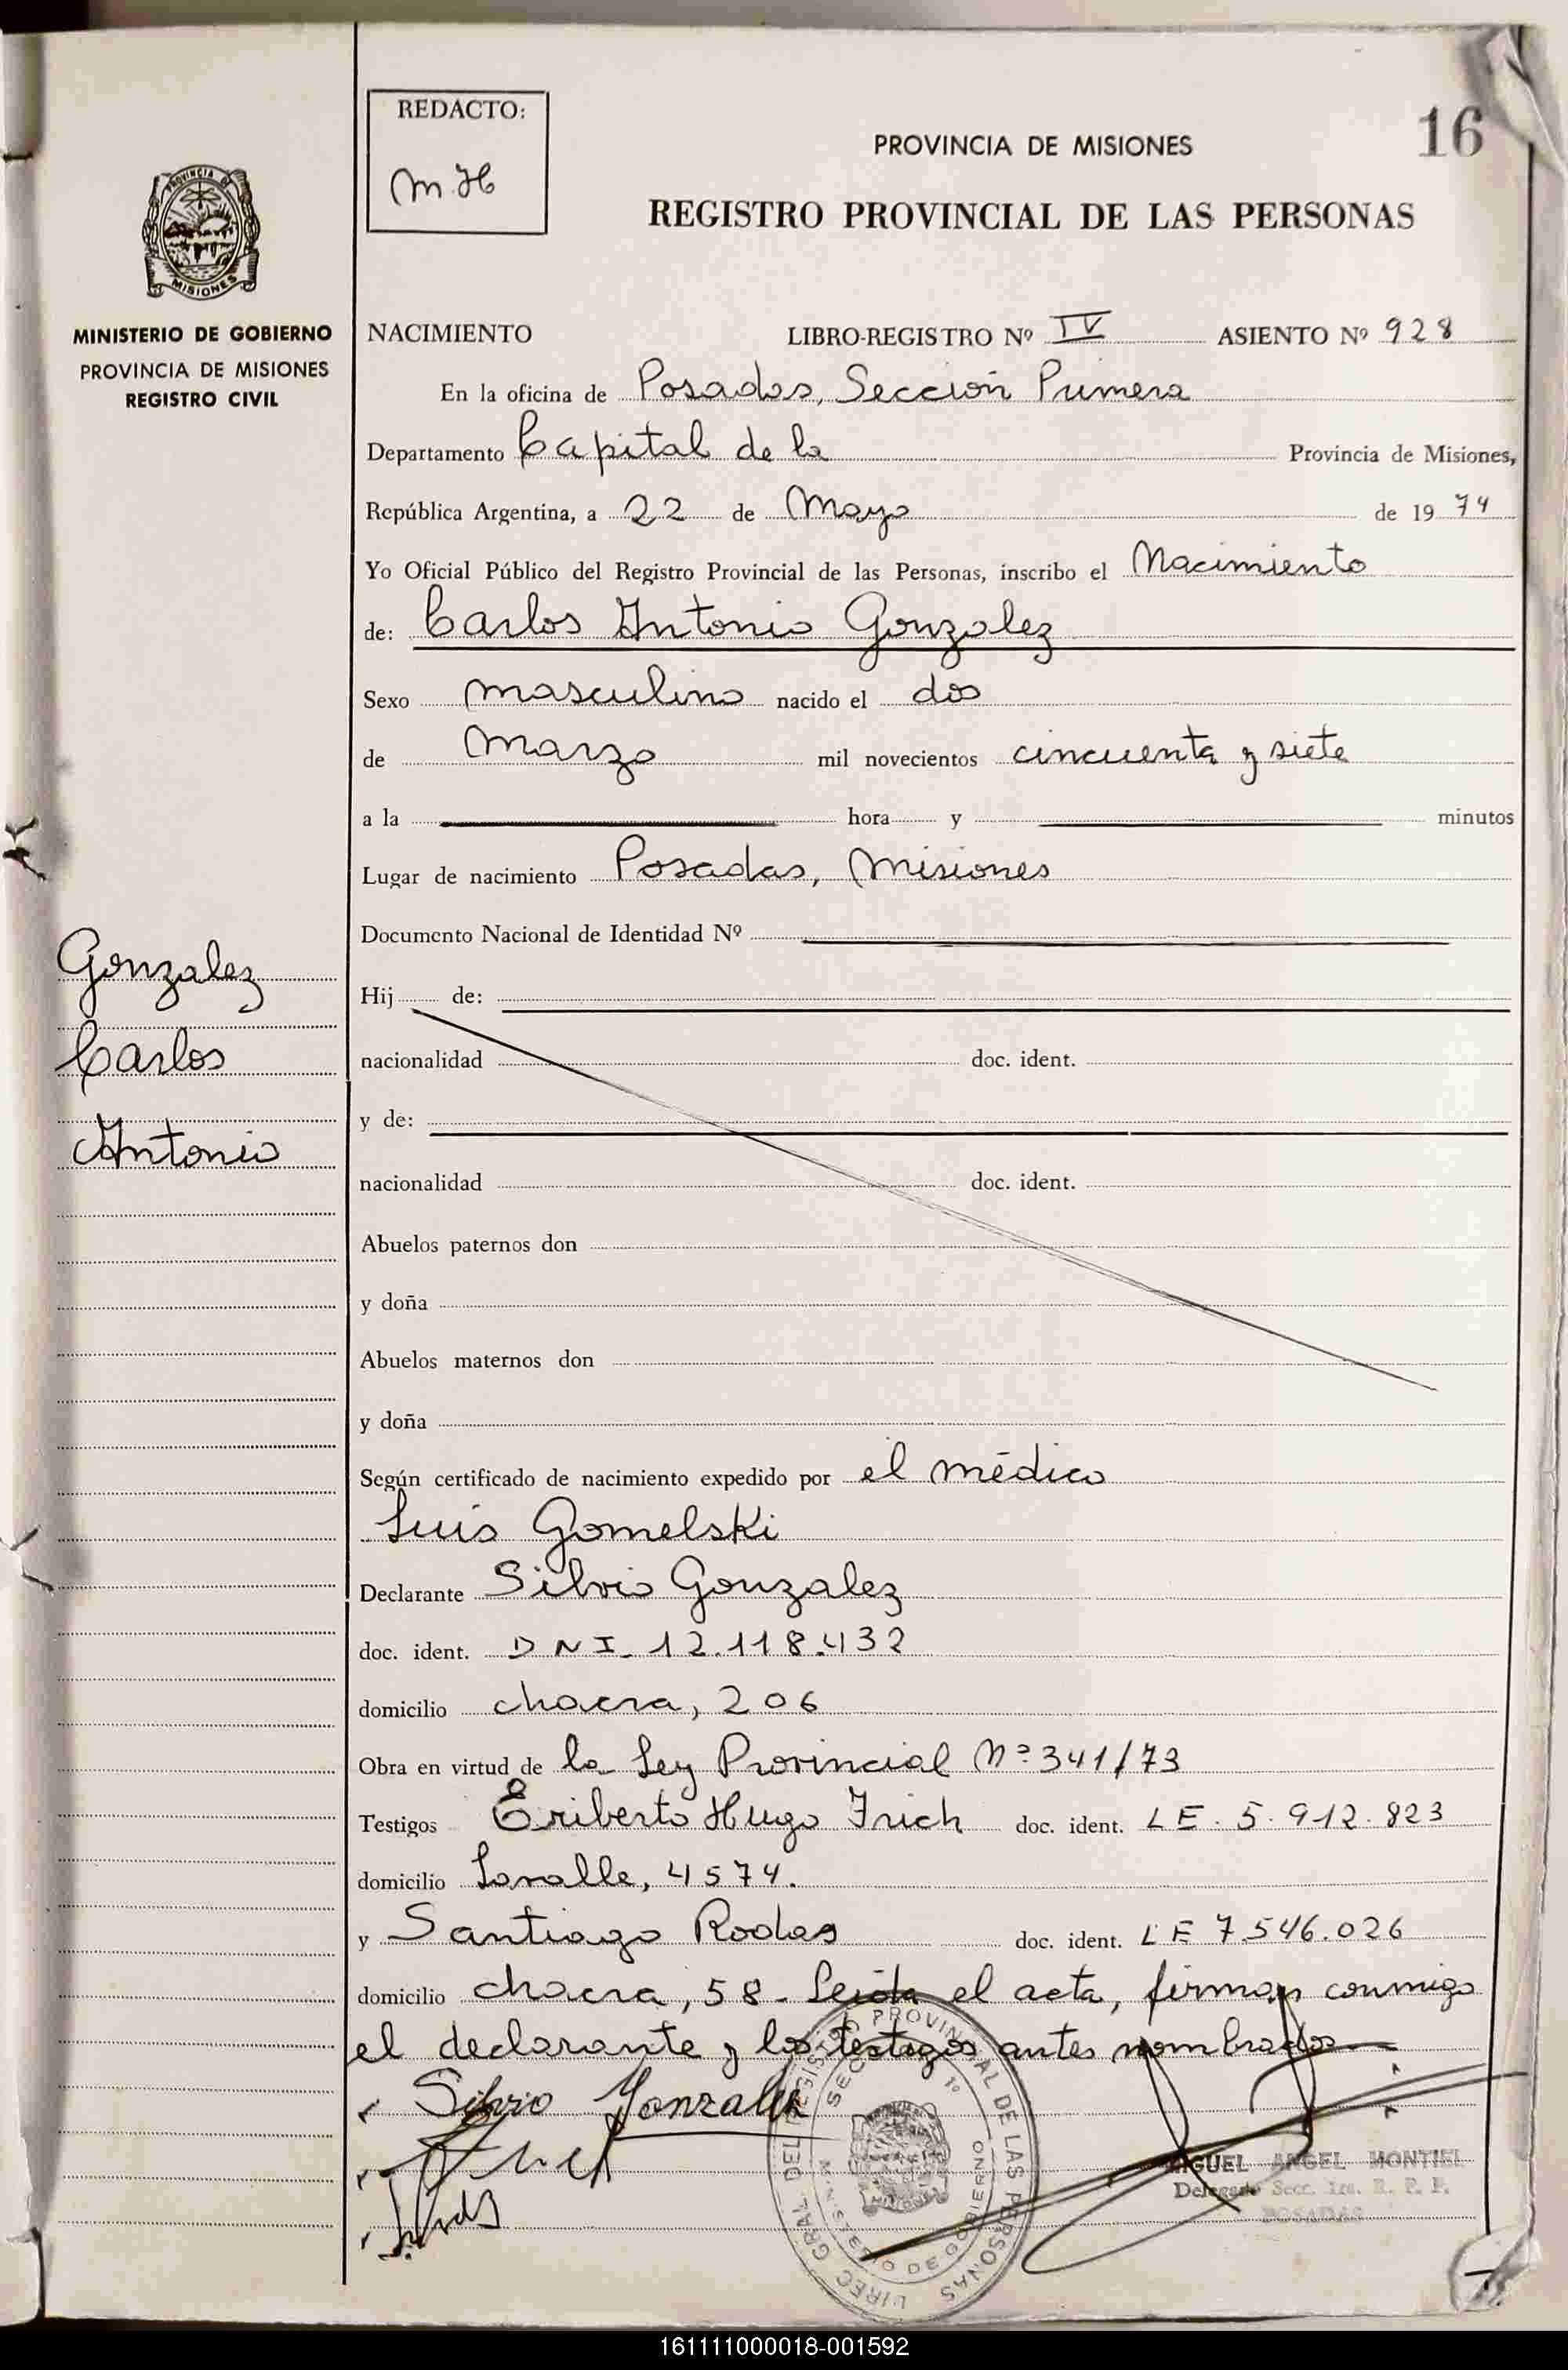 REDACTO:
M.H
16
PROVINCIA DE MISIONES
REGISTRO PROVINCIAL DE LAS PERSONAS
PROVINCIA DE
MISIONES
MINISTERIO DE GOBIERNO
PROVINCIA DE MISIONES
REGISTRO CIVIL
NACIMIENTO LIBRO-REGISTRO Nº IV ASIENTO Nº 928
En la oficina de Posadas, Sección Primera
Departamento Capital de la Provincia de Misiones,
República Argentina, a 22 de Mayo de 1974
Yo Oficial Público del Registro Provincial de las Personas, inscribo el Nacimiento
de: Carlos Antonio Gonzalez
Sexo masculino nacido el dos
de Marzo mil novecientos cincuenta y siete
a la hora y minutos
Lugar de nacimiento Posadas, Misiones
Documento Nacional de Identidad Nº
Gonzalez
Carlos
Antonio
Hij de:
nacionalidad doc. ident.
y de:
nacionalidad doc. ident.
Abuelos paternos don
y doña
Abuelos maternos don
y doña
Según certificado de nacimiento expedido por el médico
Luis Gomelski
Declarante Silvio Gonzalez
doc. ident. DNI. 12.118.432
domicilio chacra, 206
Obra en virtud de la Ley Provincial Nº 341/73
Testigos Eriberto Hugo Irich doc. ident. LE. 5.912.823
domicilio Lavalle, 4574.
y Santiago Rodas doc. ident. LE 7.546.026
domicilio chacra, 58- Leída el acta, firman conmigo
el declarante y los testigos antes nombrados
Silvio Gonzalez
DIREC. GRAL. DEL REGISTRO PROVINCIAL DE LAS PERSONAS
MIGUEL ANGEL MONTIEL
Delegado Secc. 1ra. R. P. P.
POSADAS
161111000018-001592